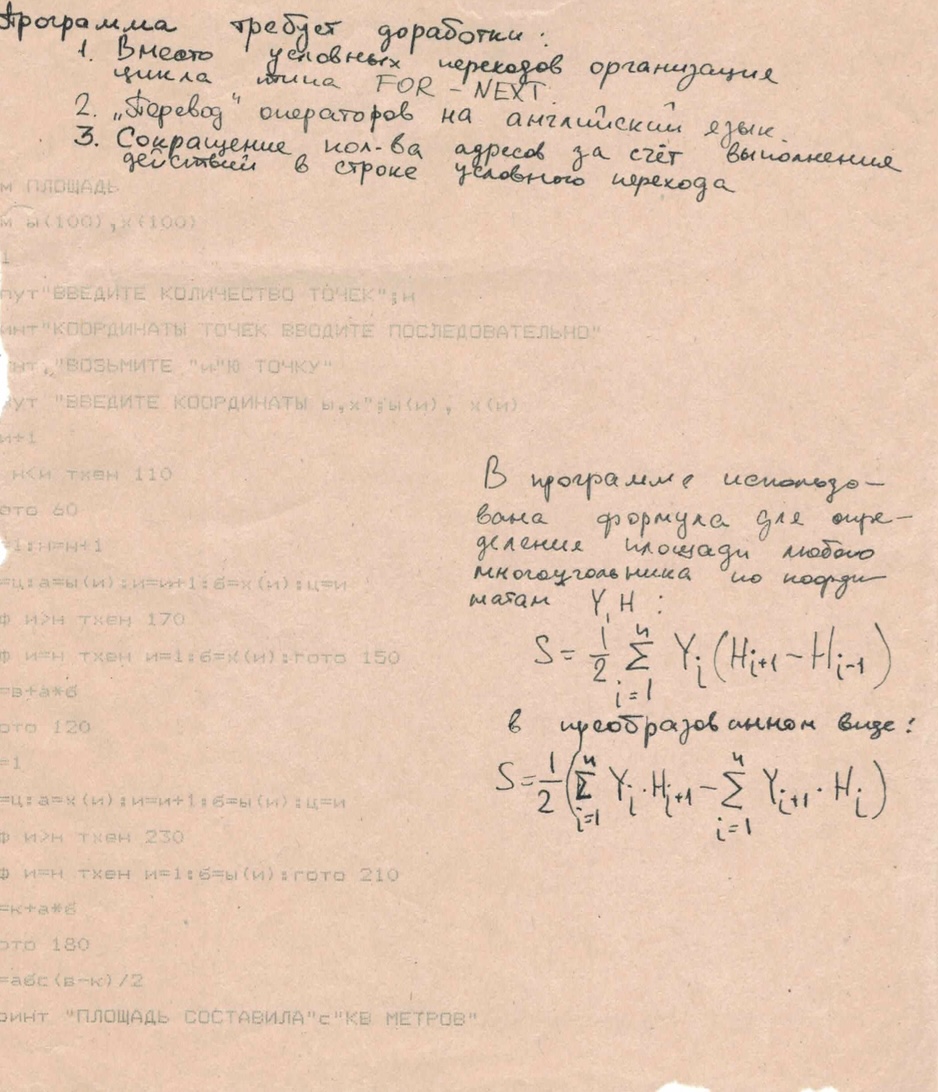 Программа требует доработки:
1. Вместо условных переходов организация
цикла типа FOR-NEXT.
2. „Перевод" операторов на английский язык.
3. Сокращение кол-ва адресов за счёт выполнения
действий в строке условного перехода
м ПЛОЩАДЬ
м ы(100),х(100)
1
пут"ВВЕДИТЕ КОЛИЧЕСТВО ТОЧЕК";н
инт"КООРДИНАТЫ ТОЧЕК ВВОДИТЕ ПОСЛЕДОВАТЕЛЬНО"
инт,"ВОЗЬМИТЕ "и"Ю ТОЧКУ"
пут "ВВЕДИТЕ КООРДИНАТЫ ы,х";ы(и), х(и)
и+1
н<и тхен 110
ото 60
=1:н=н+1
=ц:а=ы(и):и=и+1:б=х(и):ц=и
ф и>н тхен 170
ф и=н тхен и=1:б=х(и):гото 150
=в+а*б
ото 120
=1
=ц:а=х(и):и=и+1:б=ы(и):ц=и
ф и>н тхен 230
ф и=н тхен и=1:б=ы(и):гото 210
=к+а*б
ото 180
=абс(в-к)/2
ринт "ПЛОЩАДЬ СОСТАВИЛА"с"КВ МЕТРОВ"
В программе использо-
вана формула для опре-
деления площади любого
многоугольника по коорди-
натам Y, H :
S = 1/2 Σ i=1 n Yi (Hi+1 - Hi-1)
в преобразованном виде:
S = 1/2 (Σ i=1 n Yi · Hi+1 - Σ i=1 n Yi+1 · Hi)